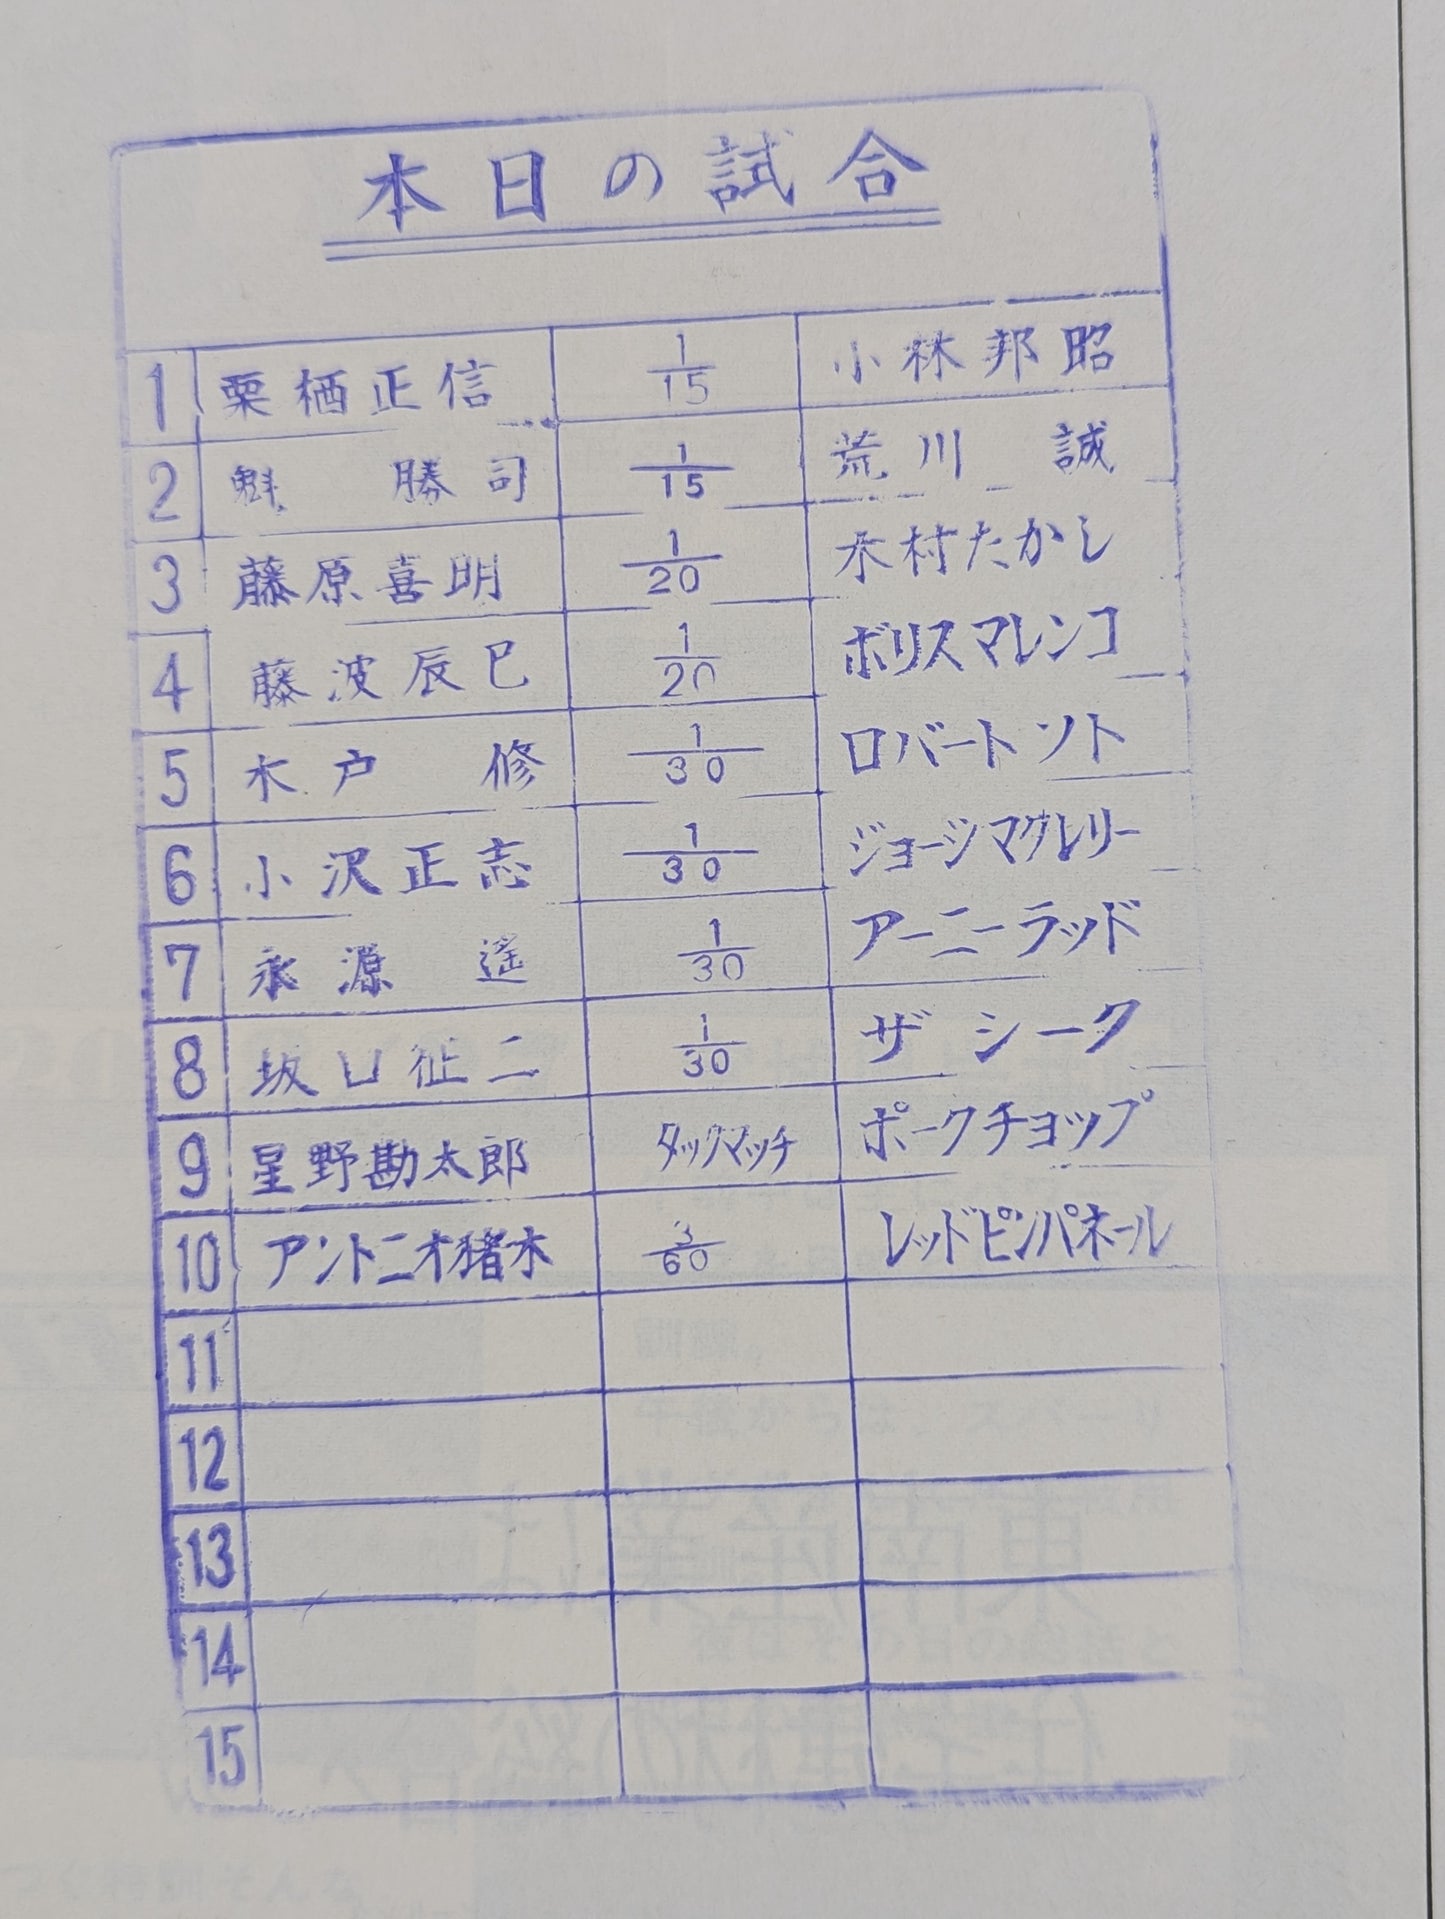 本日の試合
1 栗栖正信 1/15 小林邦昭
2 魁 勝司 1/15 荒川 誠
3 藤原喜明 1/20 木村たかし
4 藤波辰巳 1/20 ボリスマレンコ
5 木戸 修 1/30 ロバートソト
6 小沢正志 1/30 ジョージマクレリー
7 永源 遙 1/30 アーニーラッド
8 坂口征二 1/30 ザ シーク
9 星野勘太郎 タッグマッチ ポークチョップ
10 アントニオ猪木 3/60 レッドピンパネール
11
12
13
14
15